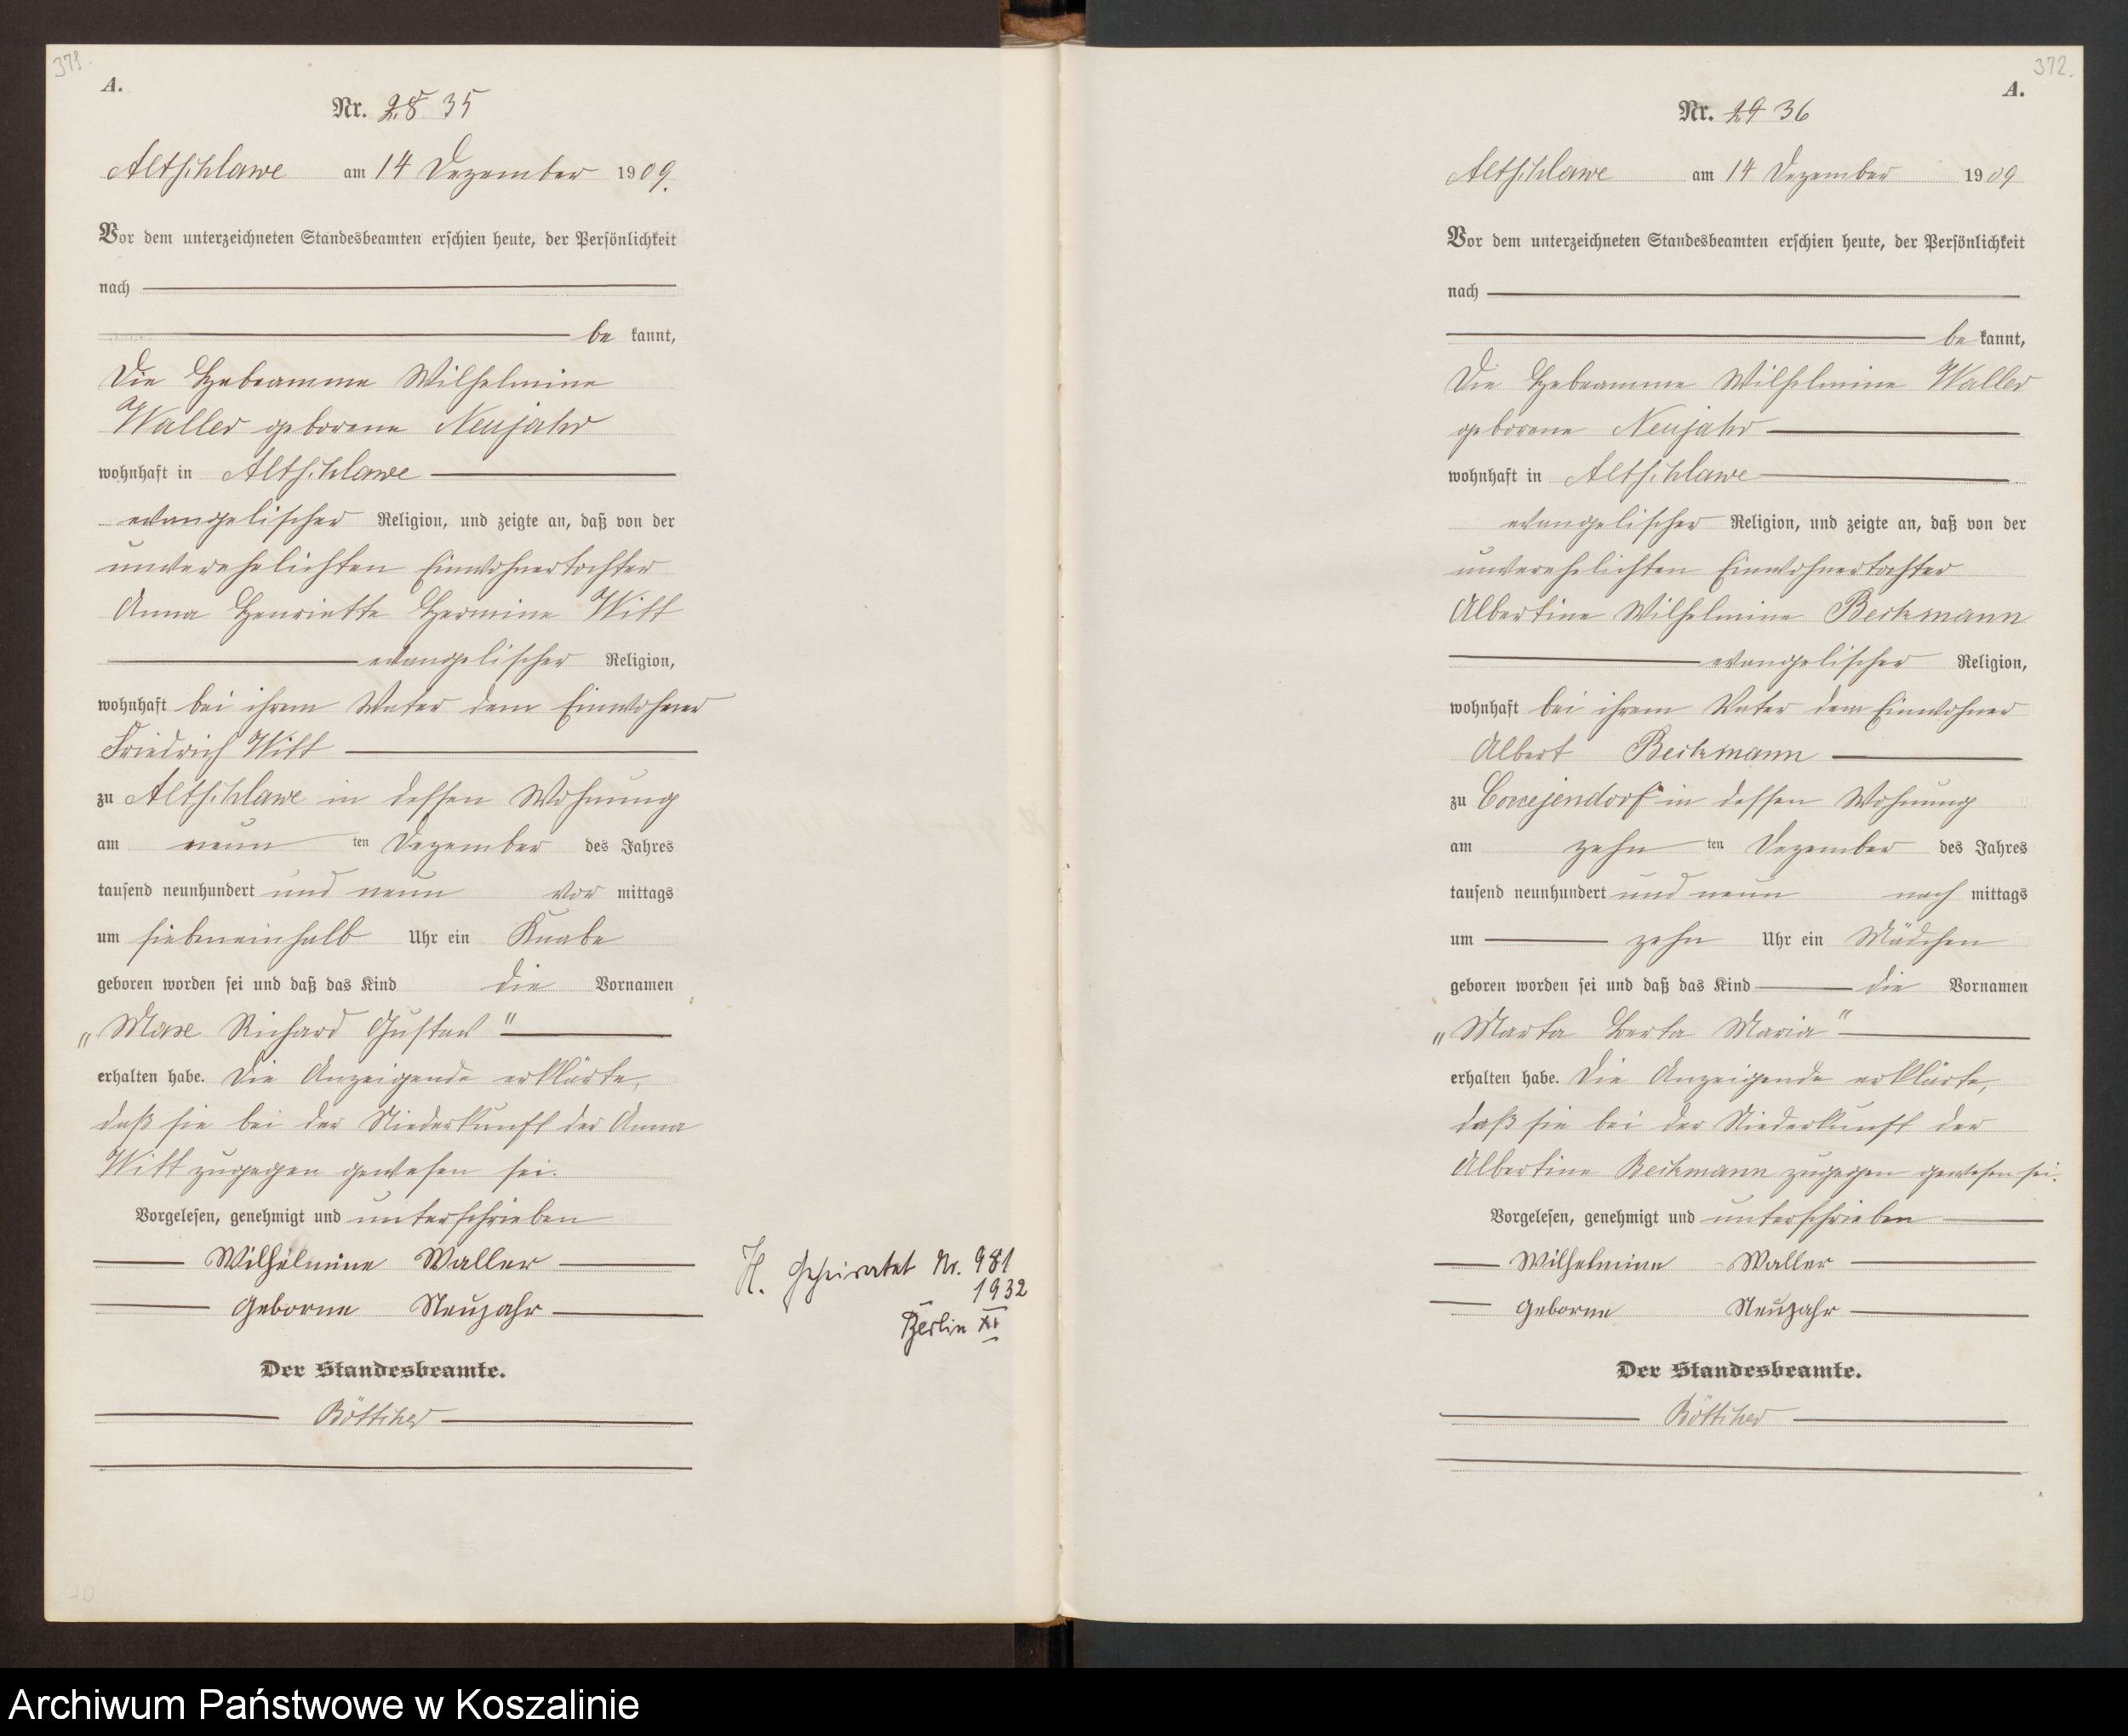 371.
A.
Nr. 28 35
Altschlawe am 14 Dezember 1909.
Vor dem unterzeichneten Standesbeamten erschien heute, der Persönlichkeit
nach
be kannt,
Die Hebeamme Wilhelmine
Waller geborene Neujahr
wohnhaft in Altschlawe
evangelischer Religion, und zeigte an, daß von der
unverehelichten Einwohnertochter
Anna Henriette Hermine Witt
evangelischer Religion,
wohnhaft bei ihrem Vater dem Einwohner
Friedrich Witt
zu Altschlawe in dessen Wohnung
am neun ten Dezember des Jahres
tausend neunhundert und neun vor mittags
um siebeneinhalb Uhr ein Knabe
geboren worden sei und daß das Kind die Vornamen
„Max Richard Gustav"
erhalten habe. Die Anzeigende erklärte,
daß sie bei der Niederkunft der Anna
Witt zugegen gewesen sei.
Vorgelesen, genehmigt und unterschrieben
Wilhelmine Waller
Geborne Neujahr
Der Standesbeamte.
Böttcher
H. Geheiratet Nr. 981
1932
Berlin XI
372.
A.
Nr. 29 36
Altschlawe am 14 Dezember 1909
Vor dem unterzeichneten Standesbeamten erschien heute, der Persönlichkeit
nach
be kannt,
Die Hebeamme Wilhelmine Waller
geborene Neujahr
wohnhaft in Altschlawe
evangelischer Religion, und zeigte an, daß von der
unverehelichten Einwohnertochter
Albertine Wilhelmine Beckmann
evangelischer Religion,
wohnhaft bei ihrem Vater dem Einwohner
Albert Beckmann
zu Coccejendorf in dessen Wohnung
am zehn ten Dezember des Jahres
tausend neunhundert und neun nach mittags
um zehn Uhr ein Mädchen
geboren worden sei und daß das Kind die Vornamen
„Marta Berta Maria"
erhalten habe. Die Anzeigende erklärte,
daß sie bei der Niederkunft der
Albertine Beckmann zugegen gewesen sei.
Vorgelesen, genehmigt und unterschrieben
Wilhelmine Waller
Geborne Neujahr
Der Standesbeamte.
Böttcher
Archiwum Państwowe w Koszalinie